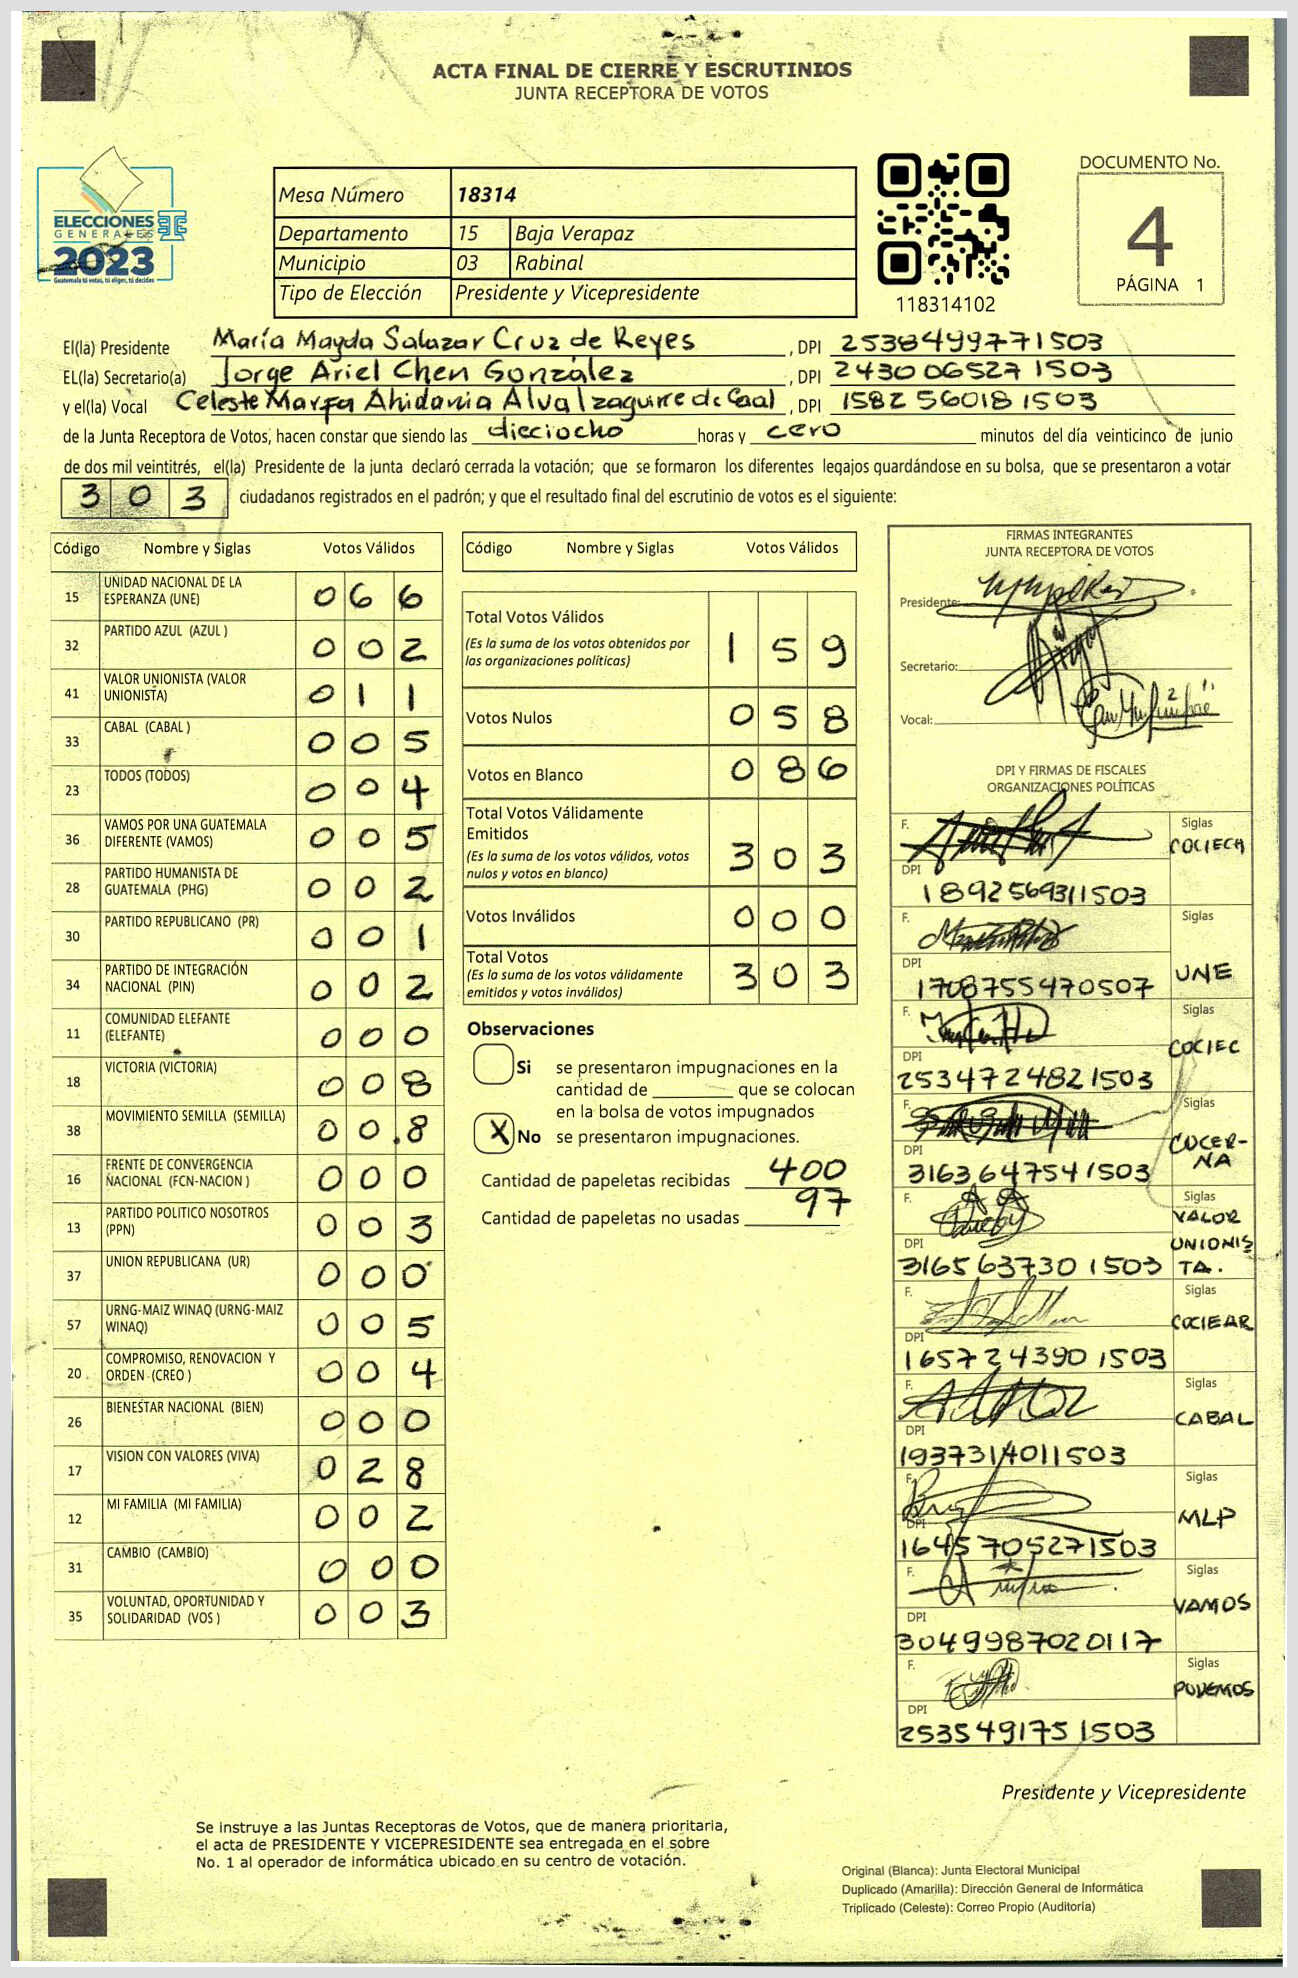 ACTA FINAL DE CIERRE Y ESCRUTINIOS
JUNTA RECEPTORA DE VOTOS
ELECCIONES
GENERALES
2023
Guatemala tú votas, tú eliges, tú decides
Mesa Número 18314
Departamento 15 Baja Verapaz
Municipio 03 Rabinal
Tipo de Elección Presidente y Vicepresidente
118314102
DOCUMENTO No.
4
PÁGINA 1
El(la) Presidente María Mayda Salazar Cruz de Reyes, DPI 2538499771503
EL(la) Secretario(a) Jorge Ariel Chen González, DPI 2430065271503
y el(la) Vocal Celeste de Caal, DPI 1582560181503
de la Junta Receptora de Votos, hacen constar que siendo las dieciocho horas y cero minutos del día veinticinco de junio
de dos mil veintitrés, el(la) Presidente de la junta declaró cerrada la votación; que se formaron los diferentes legajos guardándose en su bolsa, que se presentaron a votar
303 ciudadanos registrados en el padrón; y que el resultado final del escrutinio de votos es el siguiente:
Código Nombre y Siglas Votos Válidos
15 UNIDAD NACIONAL DE LA ESPERANZA (UNE) 066
32 PARTIDO AZUL (AZUL ) 002
41 VALOR UNIONISTA (VALOR UNIONISTA) 011
33 CABAL (CABAL ) 005
23 TODOS (TODOS) 004
36 VAMOS POR UNA GUATEMALA DIFERENTE (VAMOS) 005
28 PARTIDO HUMANISTA DE GUATEMALA (PHG) 002
30 PARTIDO REPUBLICANO (PR) 001
34 PARTIDO DE INTEGRACIÓN NACIONAL (PIN) 002
11 COMUNIDAD ELEFANTE (ELEFANTE) 000
18 VICTORIA (VICTORIA) 008
38 MOVIMIENTO SEMILLA (SEMILLA) 008
16 FRENTE DE CONVERGENCIA NACIONAL (FCN-NACION ) 000
13 PARTIDO POLITICO NOSOTROS (PPN) 003
37 UNION REPUBLICANA (UR) 000
57 URNG-MAIZ WINAQ (URNG-MAIZ WINAQ) 005
20 COMPROMISO, RENOVACION Y ORDEN (CREO ) 004
26 BIENESTAR NACIONAL (BIEN) 000
17 VISION CON VALORES (VIVA) 028
12 MI FAMILIA (MI FAMILIA) 002
31 CAMBIO (CAMBIO) 000
35 VOLUNTAD, OPORTUNIDAD Y SOLIDARIDAD (VOS ) 003
Código Nombre y Siglas Votos Válidos
Total Votos Válidos 159
(Es la suma de los votos obtenidos por
las organizaciones políticas)
Votos Nulos 058
Votos en Blanco 086
Total Votos Válidamente
Emitidos 303
(Es la suma de los votos válidos, votos
nulos y votos en blanco)
Votos Inválidos 000
Total Votos 303
(Es la suma de los votos válidamente
emitidos y votos inválidos)
Observaciones
Si se presentaron impugnaciones en la
cantidad de ________ que se colocan
en la bolsa de votos impugnados
X No se presentaron impugnaciones.
Cantidad de papeletas recibidas 400
Cantidad de papeletas no usadas 97
FIRMAS INTEGRANTES
JUNTA RECEPTORA DE VOTOS
Presidente:
Secretario:
Vocal:
DPI Y FIRMAS DE FISCALES
ORGANIZACIONES POLÍTICAS
F. Siglas COCIECA
DPI 1892569311503
F. Siglas UNE
DPI 1708755470507
F. Siglas COCIEC
DPI 2534724821503
F. Siglas COCER-NA
DPI 3163647541503
F. Siglas VALOR UNIONISTA.
DPI 3165637301503
F. Siglas COCIEAR
DPI 1657243901503
F. Siglas CABAL
DPI 1937314011503
F. Siglas MLP
DPI 1645705271503
F. Siglas VAMOS
DPI 3049987020117
F. Siglas PODEMOS
DPI 2535491751503
Presidente y Vicepresidente
Se instruye a las Juntas Receptoras de Votos, que de manera prioritaria,
el acta de PRESIDENTE Y VICEPRESIDENTE sea entregada en el sobre
No. 1 al operador de informática ubicado en su centro de votación.
Original (Blanca): Junta Electoral Municipal
Duplicado (Amarilla): Dirección General de Informática
Triplicado (Celeste): Correo Propio (Auditoría)